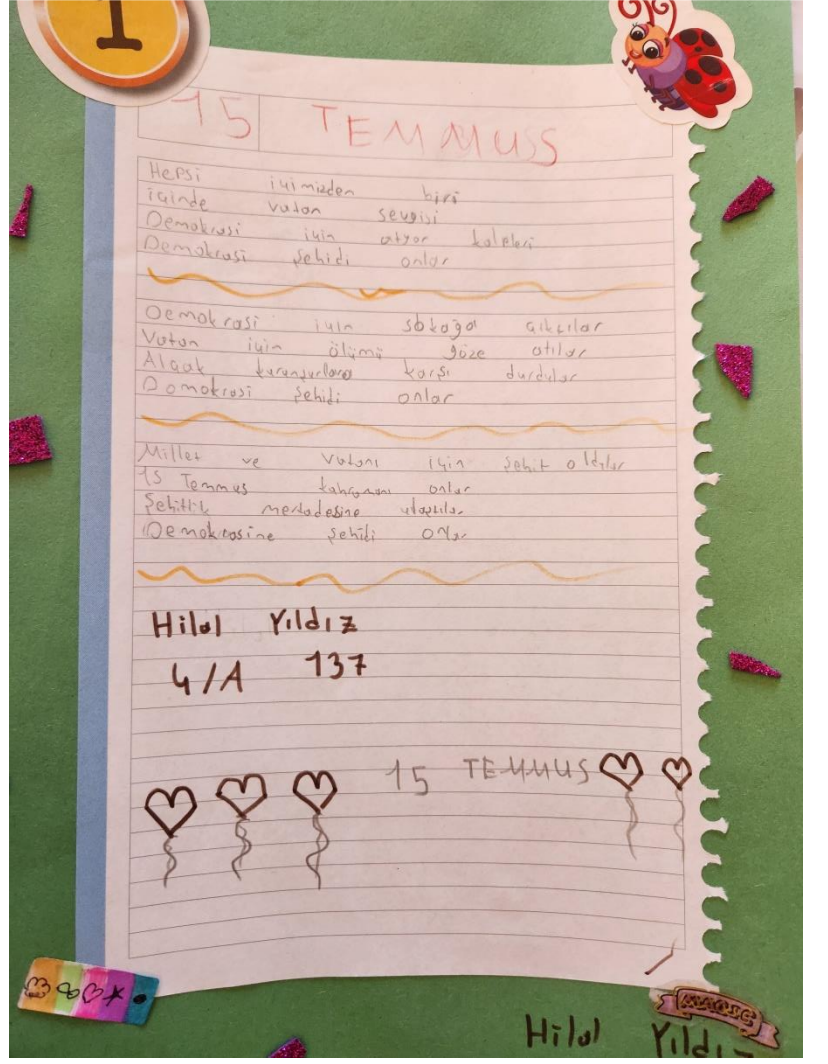 1
15 TEMMUSS
Hepsi içimizden biri
içinde vatan sevgisi
Demokrasi için atıyor kalpleri
Demokrasi şehidi onlar
Demokrasi için sokağa çıktılar
Vatan için ölümü göze atılar
Alçak kurşunlara karşı durdular
Domokrasi şehidi onlar
Millet ve Vatanı için şehit oldular
15 Temmus kahramanı onlar
Şehitlik mertadesine ulaştılar
Demokrasine şehidi onlar
Hilal Yıldız
4/A 137
15 TEMMUS
MAGIC
Hilal Yıldız